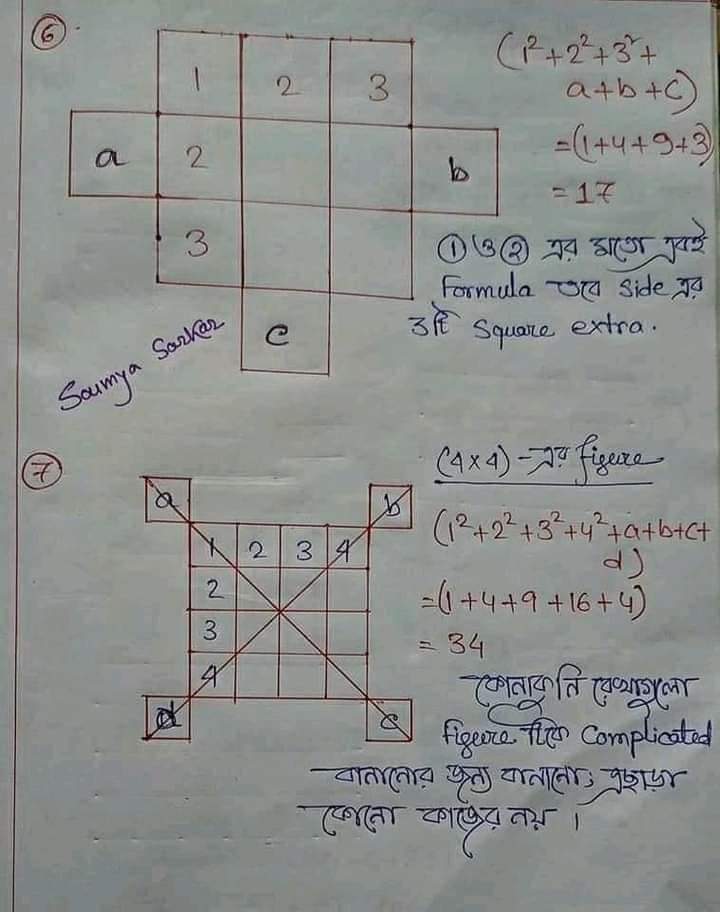 6
1 2 3
a 2 b
3
c
(1²+2²+3²+
a+b+c)
=(1+4+9+3)
=17
① ও ② এর মতো একই
Formula তবে side এর
3টি square extra.
Soumya Sarkar
7
(4×4)-এর figure
a b
1 2 3 4
2
3
4
d c
(1²+2²+3²+4²+a+b+c+
d)
=(1+4+9+16+4)
= 34
কোনাকুনি রেখাগুলো
figure টিকে Complicated
বানানোর জন্য বানানো; এছাড়া
কোনো কাজের নয় ।